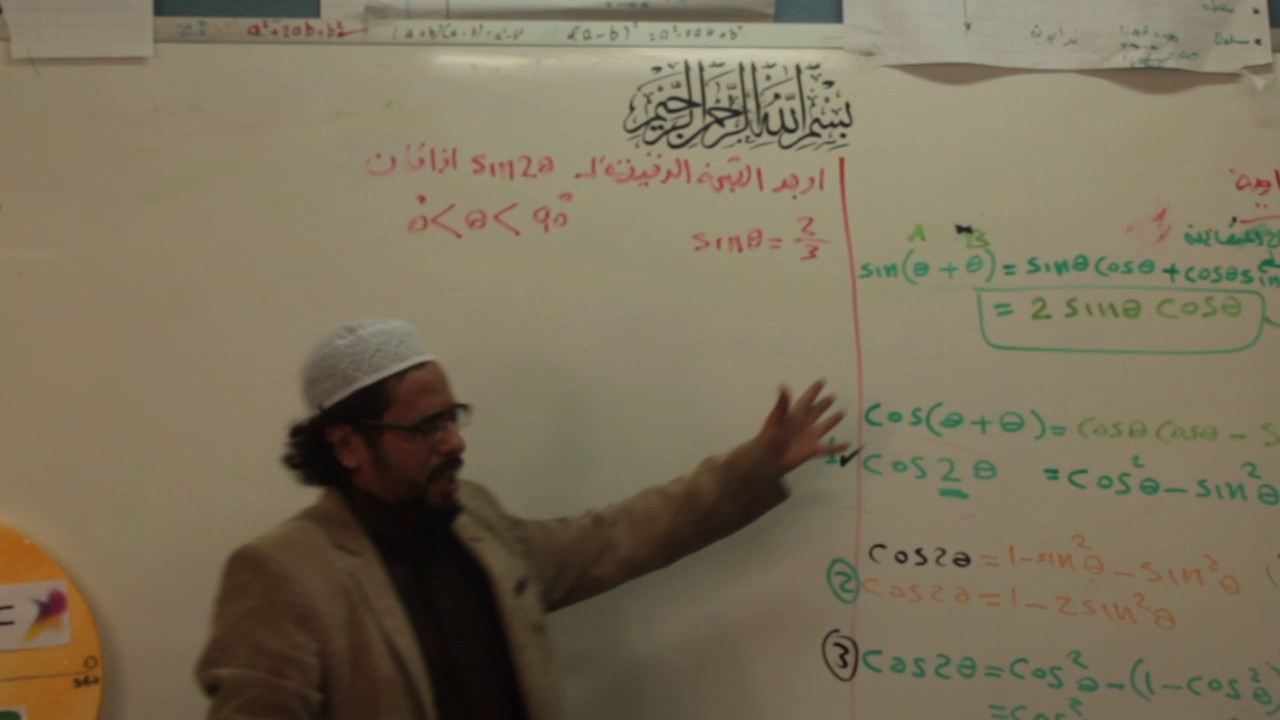 a²+2ab+b²
(a-b)² = a²-2ab+b²
بسم الله الرحمن الرحيم
اوجد القيمة الدقيقة لـ sin2θ اذا كان
sinθ = 2/3
0° < θ < 90°
A B
sin(θ + θ) = sinθ cosθ + cosθ sin
= 2 sinθ cosθ
cos(θ + θ) = cosθ cosθ - s
cos 2θ = cos²θ - sin²θ
cos2θ = 1 - sin²θ - sin²θ
② cos2θ = 1 - 2sin²θ
③ cos2θ = cos²θ - (1 - cos²θ)
= cos²